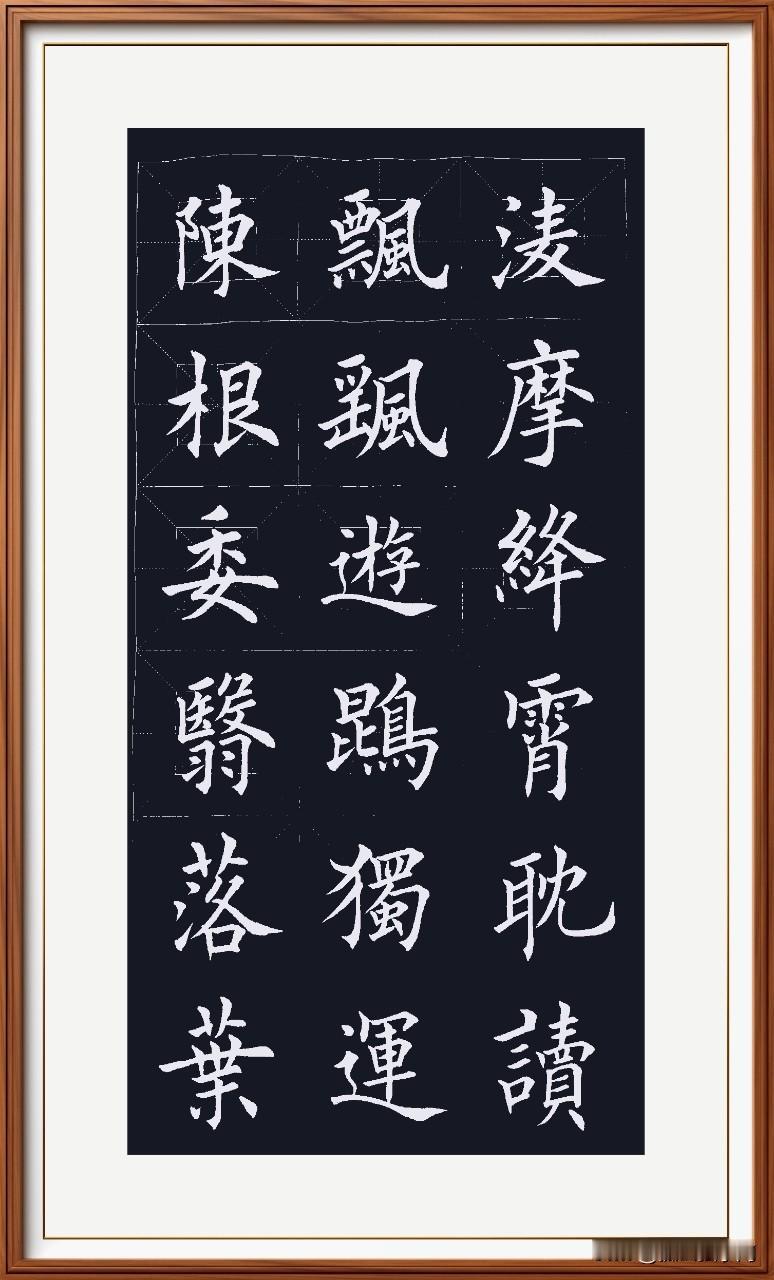 陳根委翳落葉
飄颻遊鵾獨運
淩摩絳霄耽讀